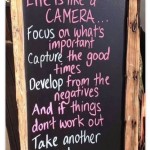 Life is like a
CAMERA...
Focus on what's
important
Capture the good
times
Develop from the
negatives
And if things
don't work out
Take another